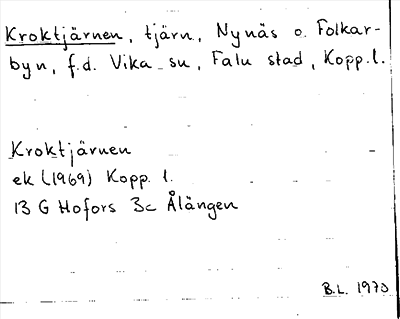 Kroktjärnen, tjärn, Nynäs o. Folkar-
byn, f.d. Vika sn, Falu stad, Kopp.l.
Kroktjärnen
ek (1969) Kopp. l.
13 G Hofors 3c Ålängen
B.L. 1973